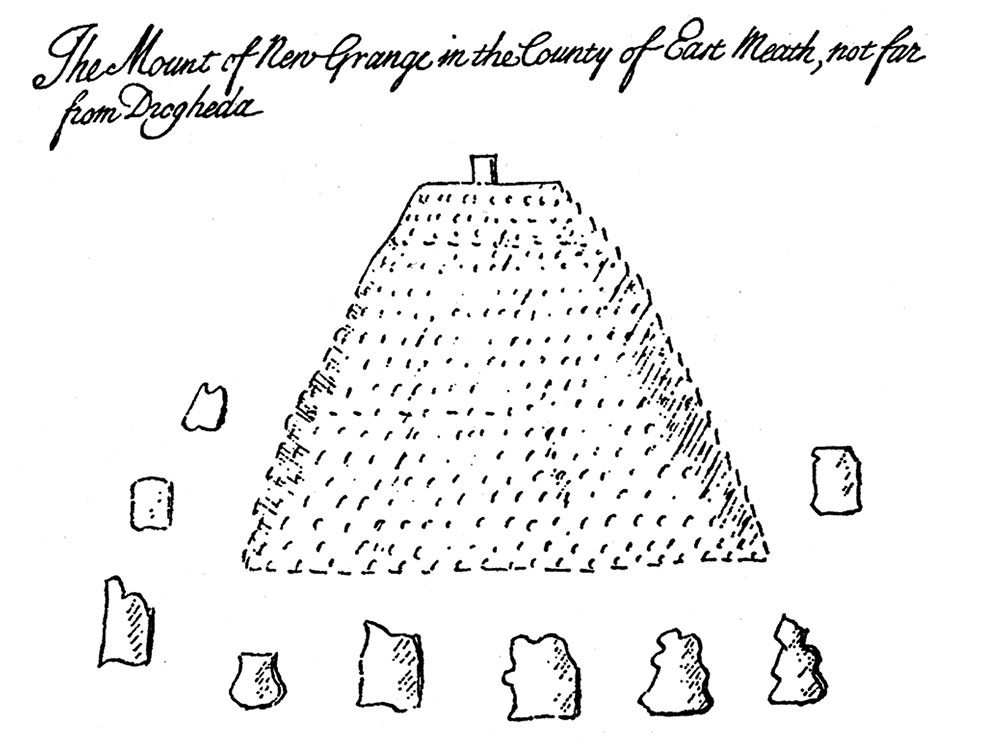 The Mount of New Grange in the County of East Meath, not far
from Drogheda